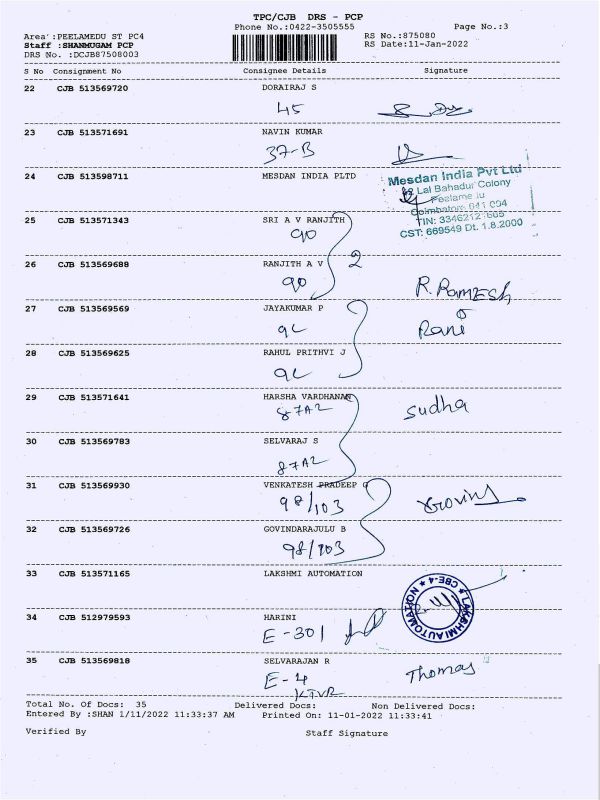 TPC/CJB DRS - PCP
Phone No.:0422-3505555 Page No.:3
Area :PEELAMEDU ST PC4 RS No.:875080
Staff :SHANMUGAM PCP RS Date:11-Jan-2022
DRS No. :DCJB87508003
S No Consignment No Consignee Details Signature
22 CJB 513569720 DORAIRAJ S
45
23 CJB 513571691 NAVIN KUMAR
37-B
24 CJB 513598711 MESDAN INDIA PLTD
Mesdan India Pvt Ltd
Lal Bahadur Colony
Coimbatore
CST: 669549 Dt. 1.8.2000
25 CJB 513571343 SRI A V RANJITH
90
26 CJB 513569688 RANJITH A V 2
90 R. RAMESH
27 CJB 513569569 JAYAKUMAR P
9C Rani
28 CJB 513569625 RAHUL PRITHVI J
9C
29 CJB 513571641 HARSHA VARDHANAN
87A2 Sudha
30 CJB 513569783 SELVARAJ S
87A2
31 CJB 513569930 VENKATESH PRADEEP G
98/103
32 CJB 513569726 GOVINDARAJULU B
98/103
33 CJB 513571165 LAKSHMI AUTOMATION
LAKSHMI AUTOMATION ★ CBE-4 ★
34 CJB 512979593 HARINI
E-301
35 CJB 513569818 SELVARAJAN R
E-4 Thomas
KTVR
Total No. Of Docs: 35 Delivered Docs: Non Delivered Docs:
Entered By :SHAN 1/11/2022 11:33:37 AM Printed On: 11-01-2022 11:33:41
Verified By Staff Signature